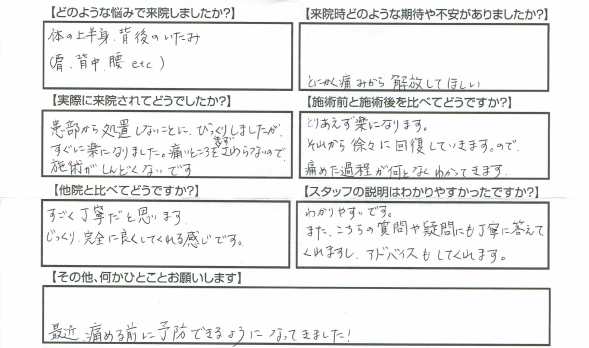 【どのような悩みで来院しましたか?】
体の上半身、背後のいたみ
(肩、背中、腰 etc)
【来院時どのような期待や不安がありましたか?】
とにかく痛みから解放してほしい
【実際に来院されてどうでしたか?】
患部から処置しないことに、びっくりしましたが、
すぐに楽になりました。痛いところをさわらないので、
施術がしんどくないです
【施術前と施術後を比べてどうですか?】
とりあえず楽になります。
それから徐々に回復していきます。ので、
痛めた過程が何となくわかってきます。
【他院と比べてどうですか?】
すごく丁寧だと思います。
じっくり、完全に良くしてくれる感じです。
【スタッフの説明はわかりやすかったですか?】
わかりやすいです。
また、こちらの質問や疑問にも丁寧に答えて
くれますし、アドバイスもしてくれます。
【その他、何かひとことお願いします】
最近、痛める前に予防できるようになってきました!